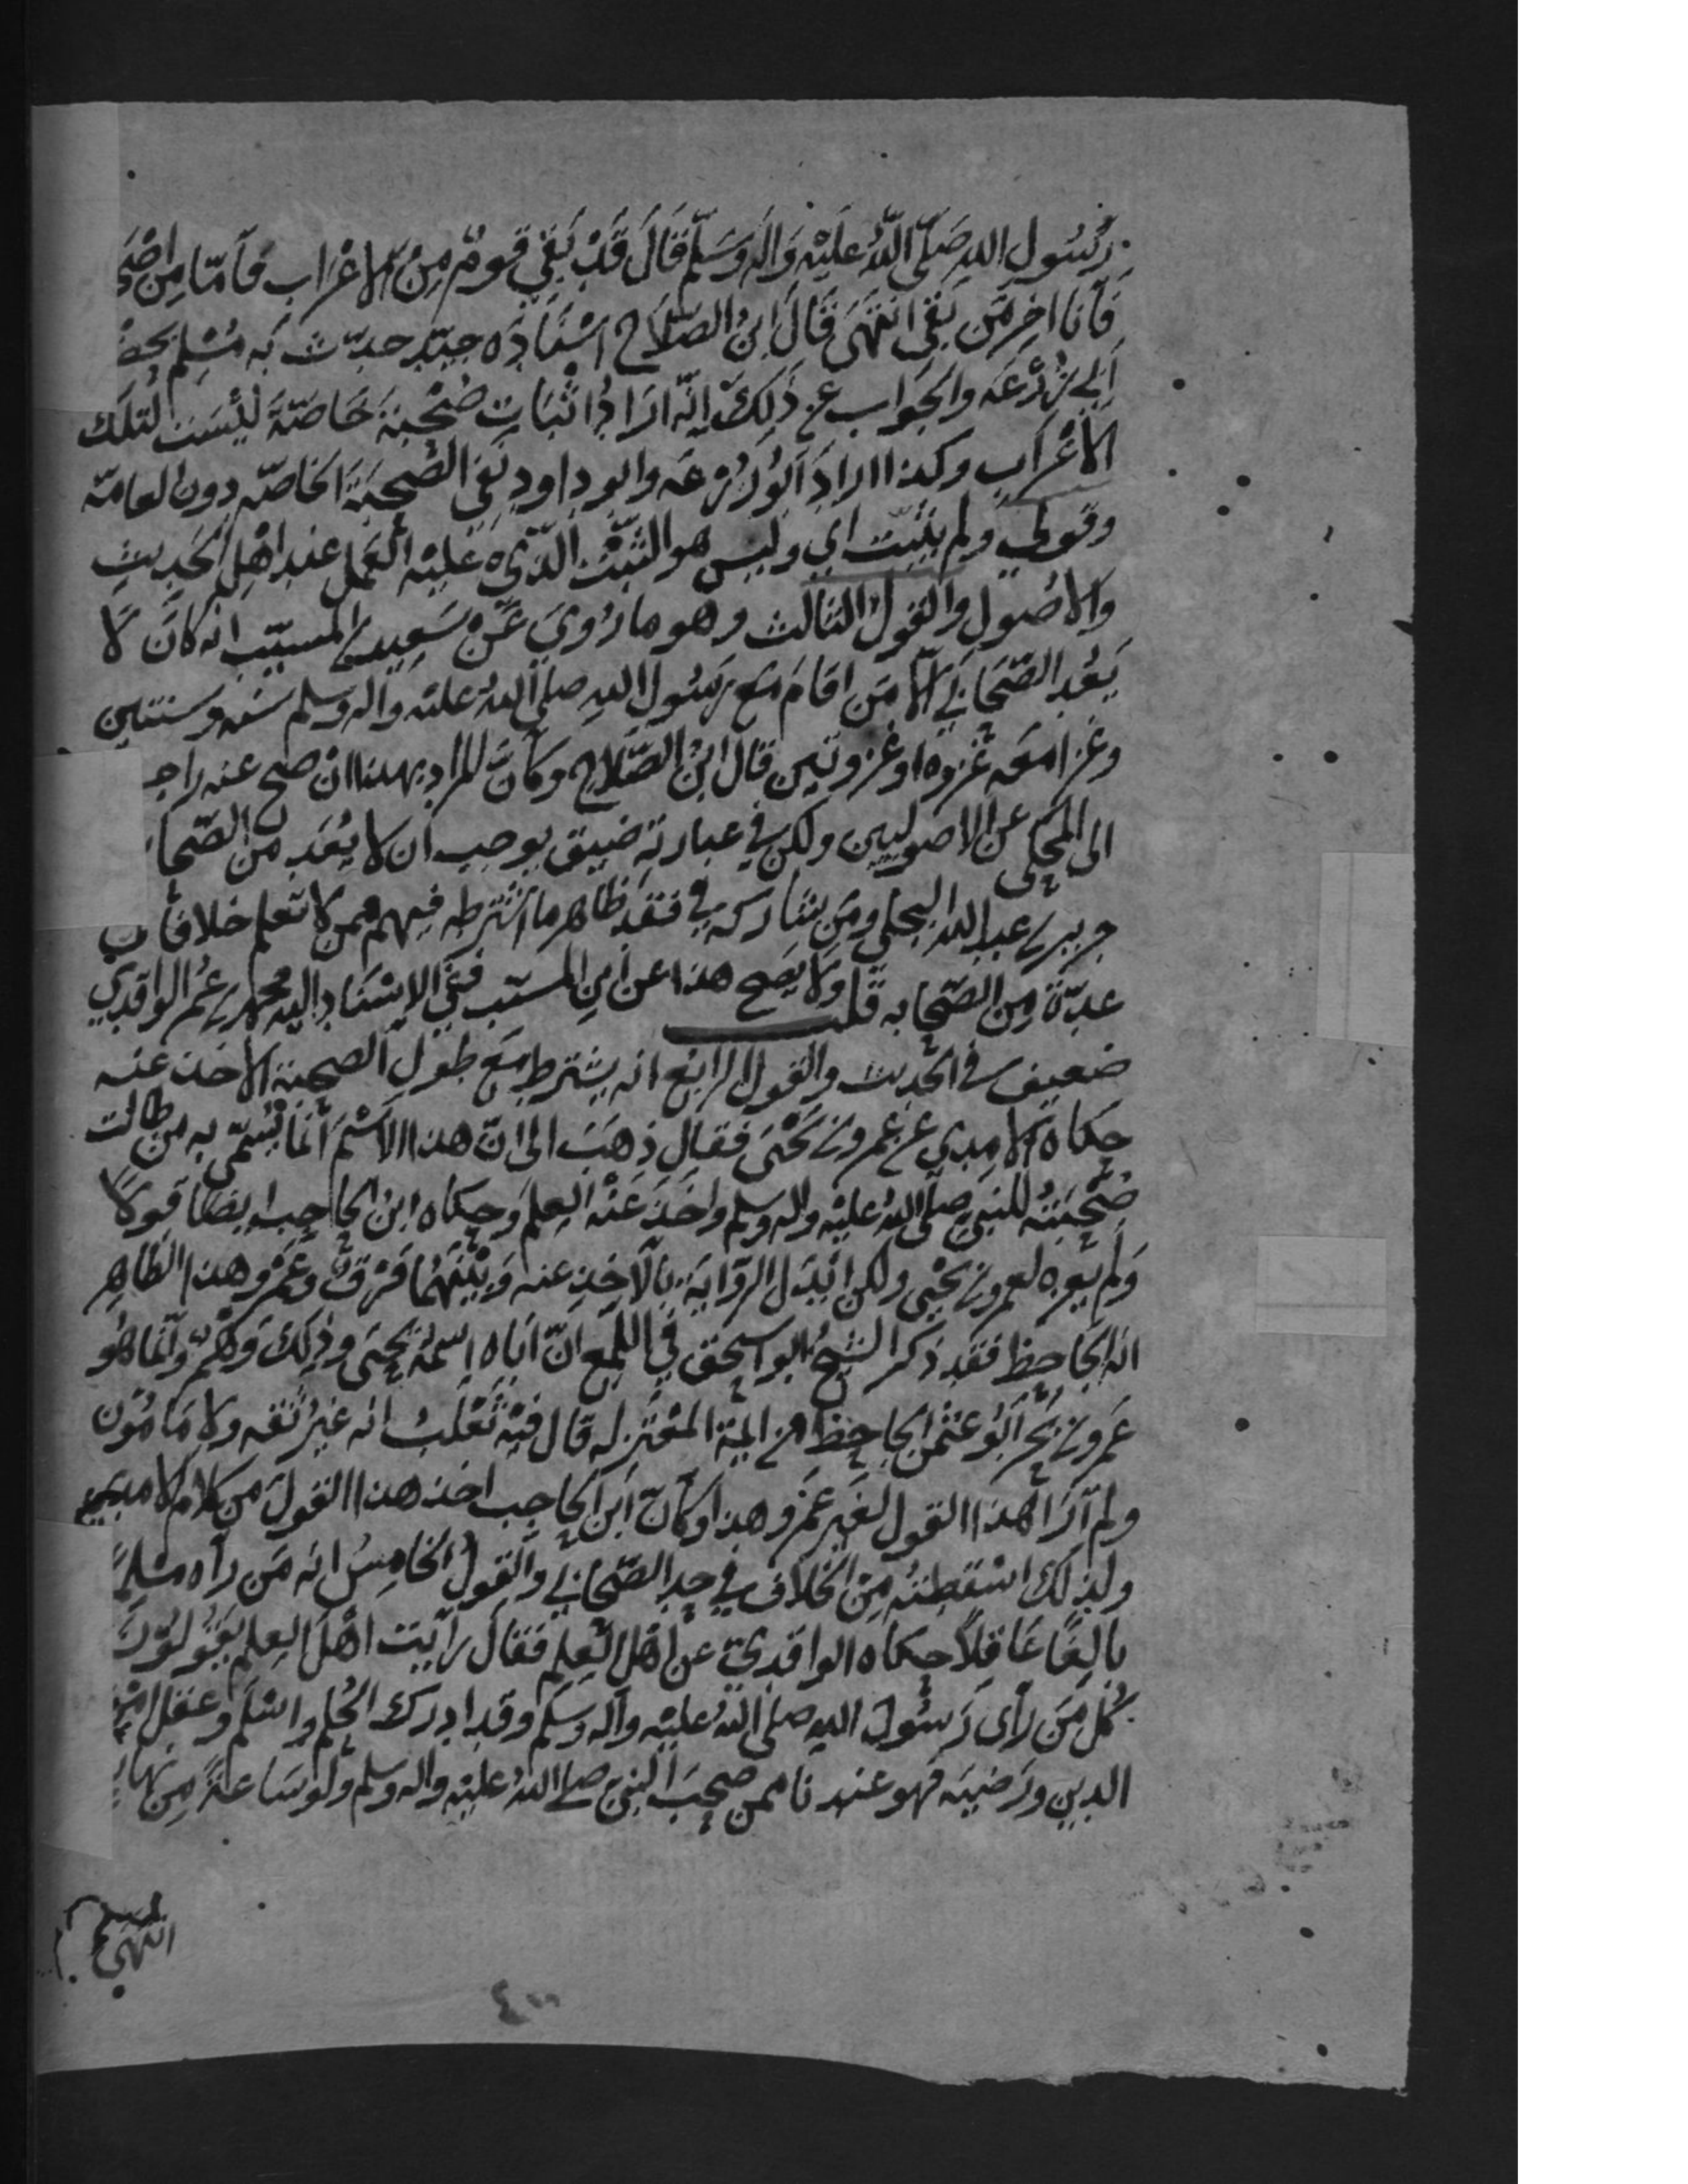 رَسُولِ اللهِ صَلَّى اللَّهُ عَلَيْهِ وَالِهِ وَسَلَّمَ قَالَ قَدْ بَقِيَ قَوْمٌ مِنَ الاعْرَابِ فَأَمَّا مِن اصْحَ
فَأَنَا اخِر مَن بَقِيَ انْتَهَى قَالَ ابْنُ الصَّلَاحِ اسْنَادُه جيّد حدّث بِه مُسْلِم بحضْ
أبي زُرْعَه والجَوَاب عن ذَلِكَ انّه ارَادَ اثْبَاتَ صُحْبَة خَاصَّةً لَيْسَت لتلك
الأعْرَابِ وكذا اراد أَبُو زُرْعَه وابو داود نفي الصُّحبَةَ الخَاصّه دون العامّه
وقولي ولم يثبت اي وليس هو الثبْت الَّذي عَلَيْه العَمل عند اهْلِ الحَديثِ
والاصُولِ والقَولُ الثالث وهو ما رُوِيَ عَنْ سَعِيد بن المسيّب انه كَانَ لا
يَعُد الصَّحَابي الّا مَن اقَامَ مَعَ رَسُولِ اللهِ صلى اللهُ عليْه واله وسلم سنه وسنتين
وغزا معَه غزوه او غزوتين قال ابْنُ الصَّلَاح وكَأنَّ المراد بهذا ان صح عنه راجـ
الى المَحكي عن الاصوليين ولكن في عبارته ضيق يوجب ان لا يُعَد من الصَّحا
جرير بن عبد الله البجلي ومَن يشاركه في فقد ظاهر ما اشترطه فيهم ممن لا نعلم خلافا في
عدّة من الصّحابه قلت ولا يصح هذا عن ابن المسيّب ففي الاسْنَاد اليه محمد بن عُمر الواقدي
ضعيف في الحديث والقول الرابع انه يشترط مع طول الصحبة الاخذ عنه
حكاه الامدي عن عمرو بن يَحْيَى فقال ذهَبَ الى انّ هذا الاسْمَ انَّما يُسَمّى به من طالت
صُحْبَتُه للنبيّ صلى الله عليْه واله وسلم واخَذَ عَنْه العِلم وحكاه ابن الحاجب ايضا قولًا
ولم يعزه لعمرو بن يحيى ولكن ابدَل الرّوايَة بالأخذِ عنه وَبَيْنَهُما فَرْقٌ وعَمْرو هذا الظاهِر
انه الجاحظ فقد ذكر الشيخُ ابو اسحق في اللُّمع انّ اباه اسمُهُ يحيَى وذلك وَهْمٌ وانّما هُو
عَمرو بن بَحْر أبُو عثمن الجاحظ من ايمة المعْتزله قال فيْه ثَعْلَبُ انه غيرُ ثقه ولا مَامُون
ولم أرَ هذا القول لغَيرِ عَمْرو هذا وكَأنّ ابن الحاجب اخذ هذا القولَ من كلام الامدي
ولذلك اسْقطتُه مِنَ الخلاف في حد الصّحابي والقولُ الخامِسُ انه مَن رآه مسْلِمًا
بالِغًا عَاقِلًا حكاه الواقديّ عن اهْلِ العِلم فقال رايت اهْل العِلم يقولُون
كُلّ مَن رأى رَسُولَ الله صلى اللهُ عليْه وآله وسَلم وقد ادرك الحُلم واسْلَم وعقل امر
الدين ورَضيَه فهو عندنا ممن صحبَ النبيّ صلى اللهُ عليْه واله وسلم ولو سَاعةً مِن نهار
انتهى
٤٠٠